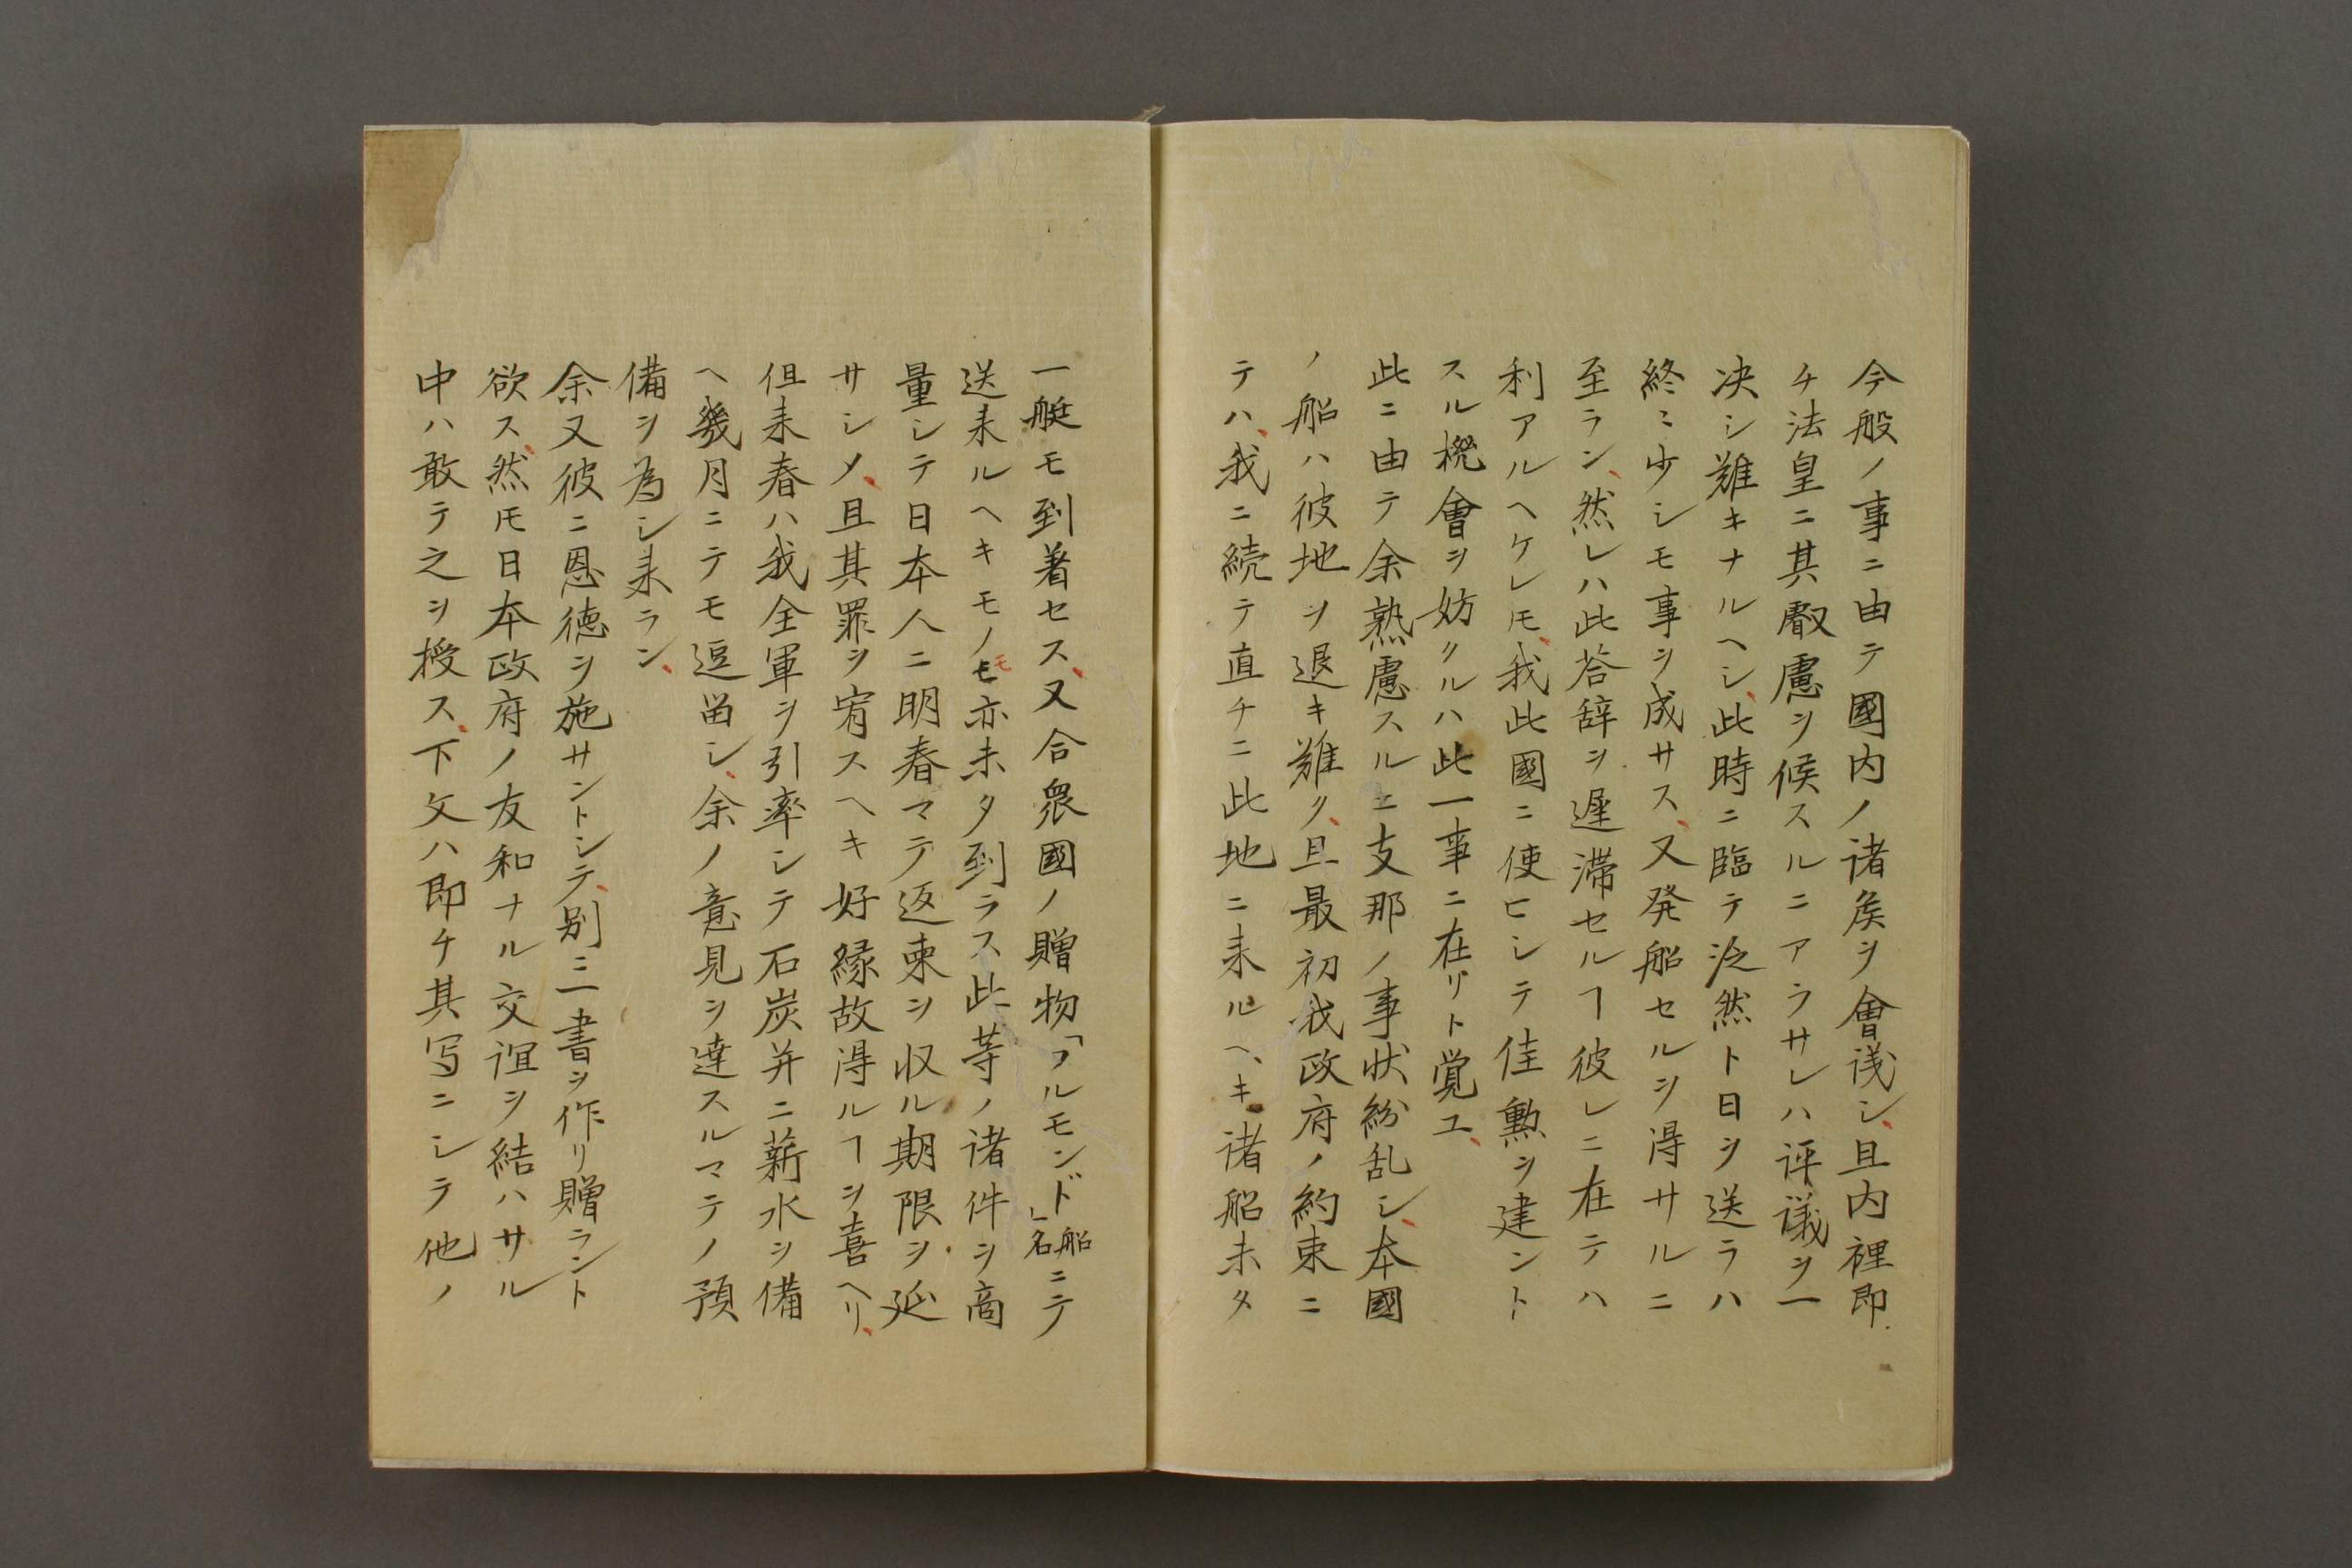 今般ノ事ニ由テ國内ノ諸矦ヲ會議シ、且内裡即
チ法皇ニ其叡慮ヲ候スルニアラサレハ評議ヲ一
决シ難キナルヘシ、此時ニ臨テ泛然ト日ヲ送ラハ
終ニ少シモ事ヲ成サス、又発船セルヲ得サルニ
至ラン、然レハ此荅辞ヲ遅滞セルヿ彼レニ在テハ
利アルヘケレ𪜈、我此國ニ使ヒシテ佳勲ヲ建ント
スル機會ヲ妨クルハ此一事ニ在リト覚ユ、
此ニ由テ余熟慮スルニ支那ノ事状紛乱シ、本國
ノ船ハ彼地ヲ退キ難ク、且最初我政府ノ約束ニ
テハ、我ニ続テ直チニ此地ニ来ルヘキ諸船未タ
一艇モ到着セス、又合衆國ノ贈物「フルモンド」船名ニテ
送来ルヘキモノモ亦未タ到ラス此等ノ諸件ヲ商
量シテ日本人ニ明春マテ返柬ヲ収ル期限ヲ延
サシメ、且其罪ヲ宥スヘキ好縁故得ルヿヲ喜ヘリ、
但来春ハ我全軍ヲ引率シテ石炭并ニ薪水ヲ備
ヘ幾月ニテモ逗留シ、余ノ意見ヲ達スルマテノ預
備ヲ為シ来ラン、
余又彼ニ恩徳ヲ施サントシテ、別ニ一書ヲ作リ贈ラント
欲ス、然𪜈日本政府ノ友和ナル交誼ヲ結ハサル
中ハ敢テ之ヲ授ス、下文ハ即チ其写ニシテ他ノ